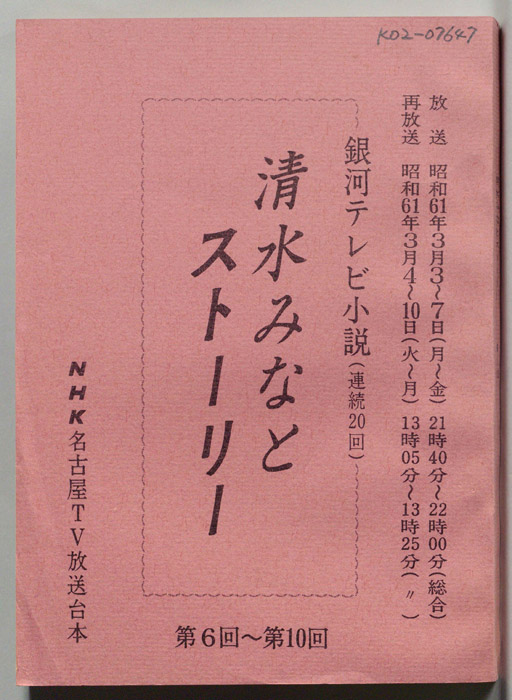 K02-07647
放送 昭和61年3月3〜7日(月〜金) 21時40分〜22時00分(総合)
再放送 昭和61年3月4〜10日(火〜月) 13時05分〜13時25分(〃)
銀河テレビ小説(連続20回)
清水みなと
ストーリー
NHK名古屋TV放送台本
第6回〜第10回